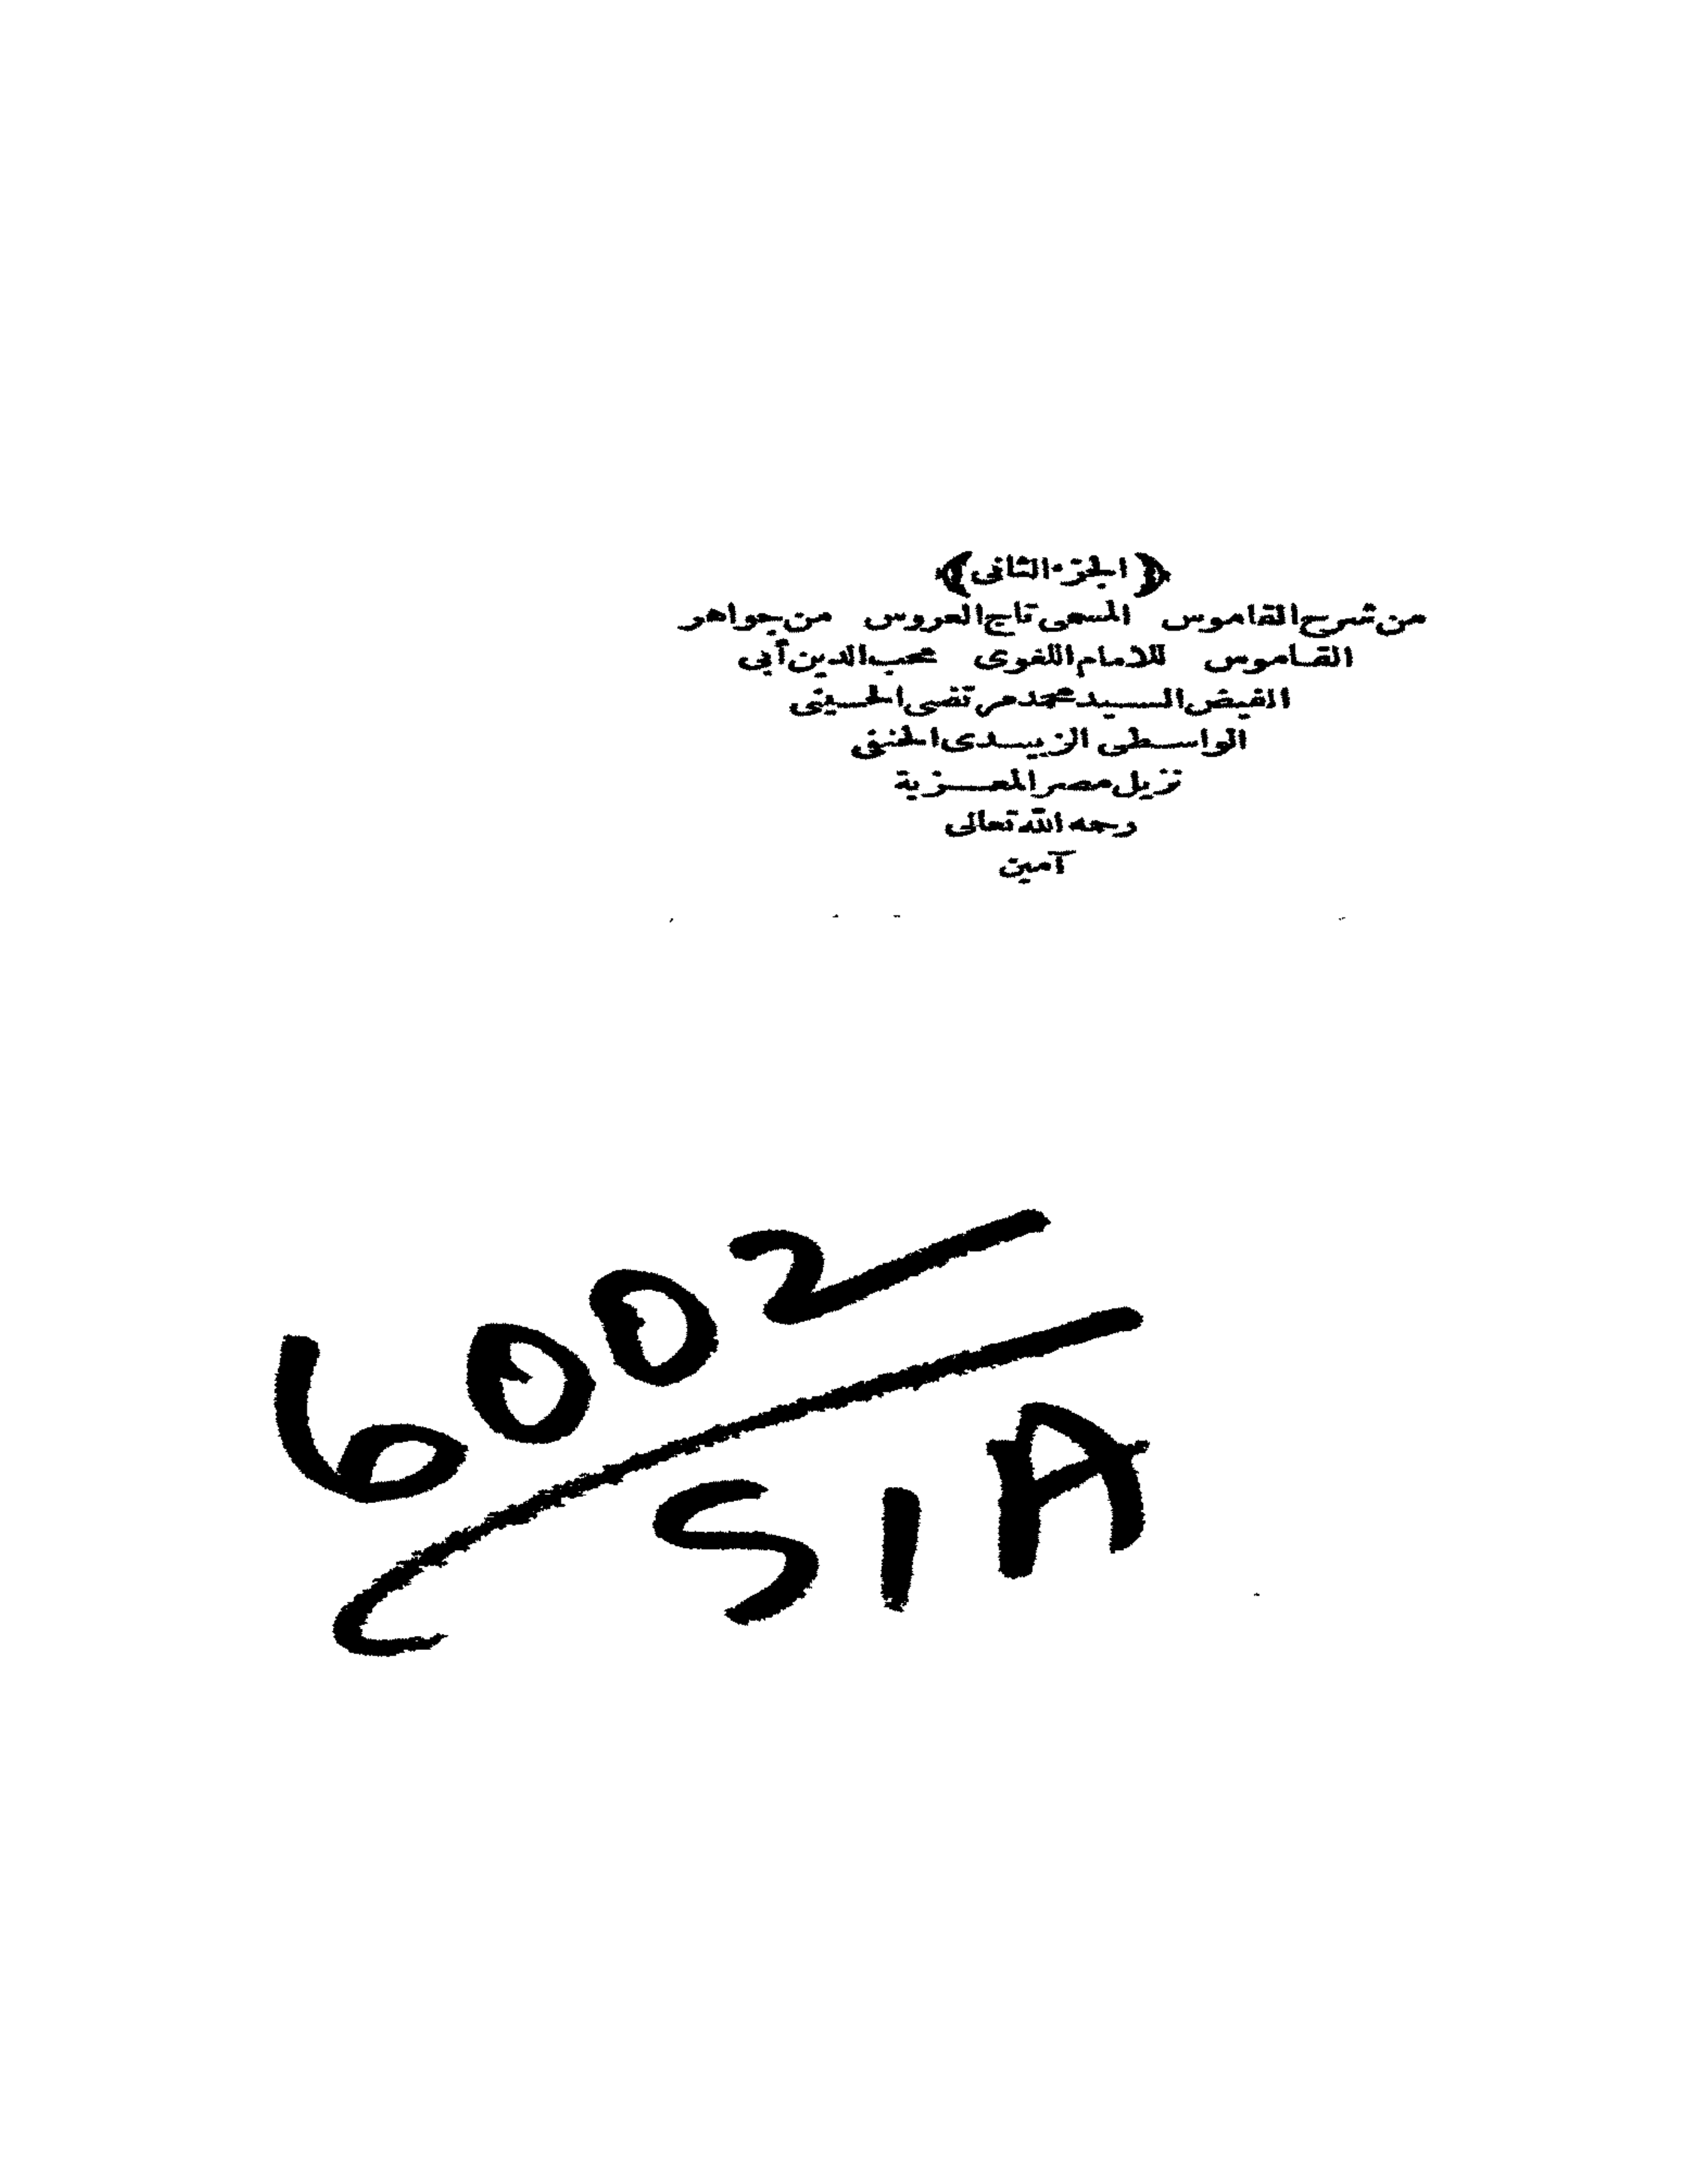 ﴿الجزء الثانى﴾
من شرح القاموس المسمى تاج العروس من جواهر
القاموس للامام اللغوى محب الدين أبى
الفيض السيد محمد مرتضى الحسينى
الواسطى الزبيدى الحنفى
نزيل مصر المعزية
رحمه الله تعالى
آمين
6002
SIA